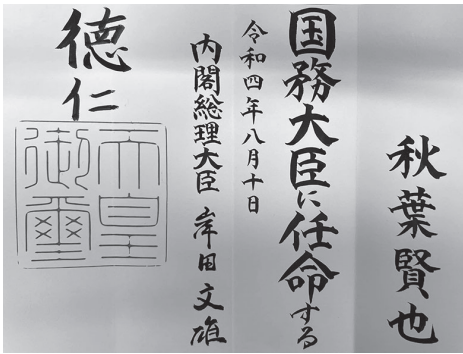 秋葉賢也
国務大臣に任命する
令和四年八月十日
内閣総理大臣 岸田文雄
徳仁
天皇御璽